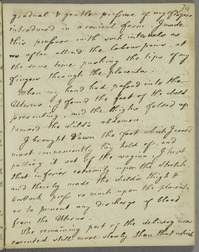 gradual & gentle pressure of my fingers
introduced in a conical form. I made
this pressure with such intervals as
so often attend the labour pains, at
the same time pushing the tips of my
fingers through the placenta.
When my hand had passed into the
Uterus, I found the feet of the child
presenting, and the thighs folded up
toward the child's abdomen.
I brought down the foot which I could
most conveniently lay hold of, and
pulling it out of the vagina, I put
that inferior extremity upon the stretch,
and thereby made the child's thigh &
buttock press so much upon the placenta,
as to prevent any discharge of blood
from the Uterus.
The remaining part of the delivery was
executed still more slowly than that which